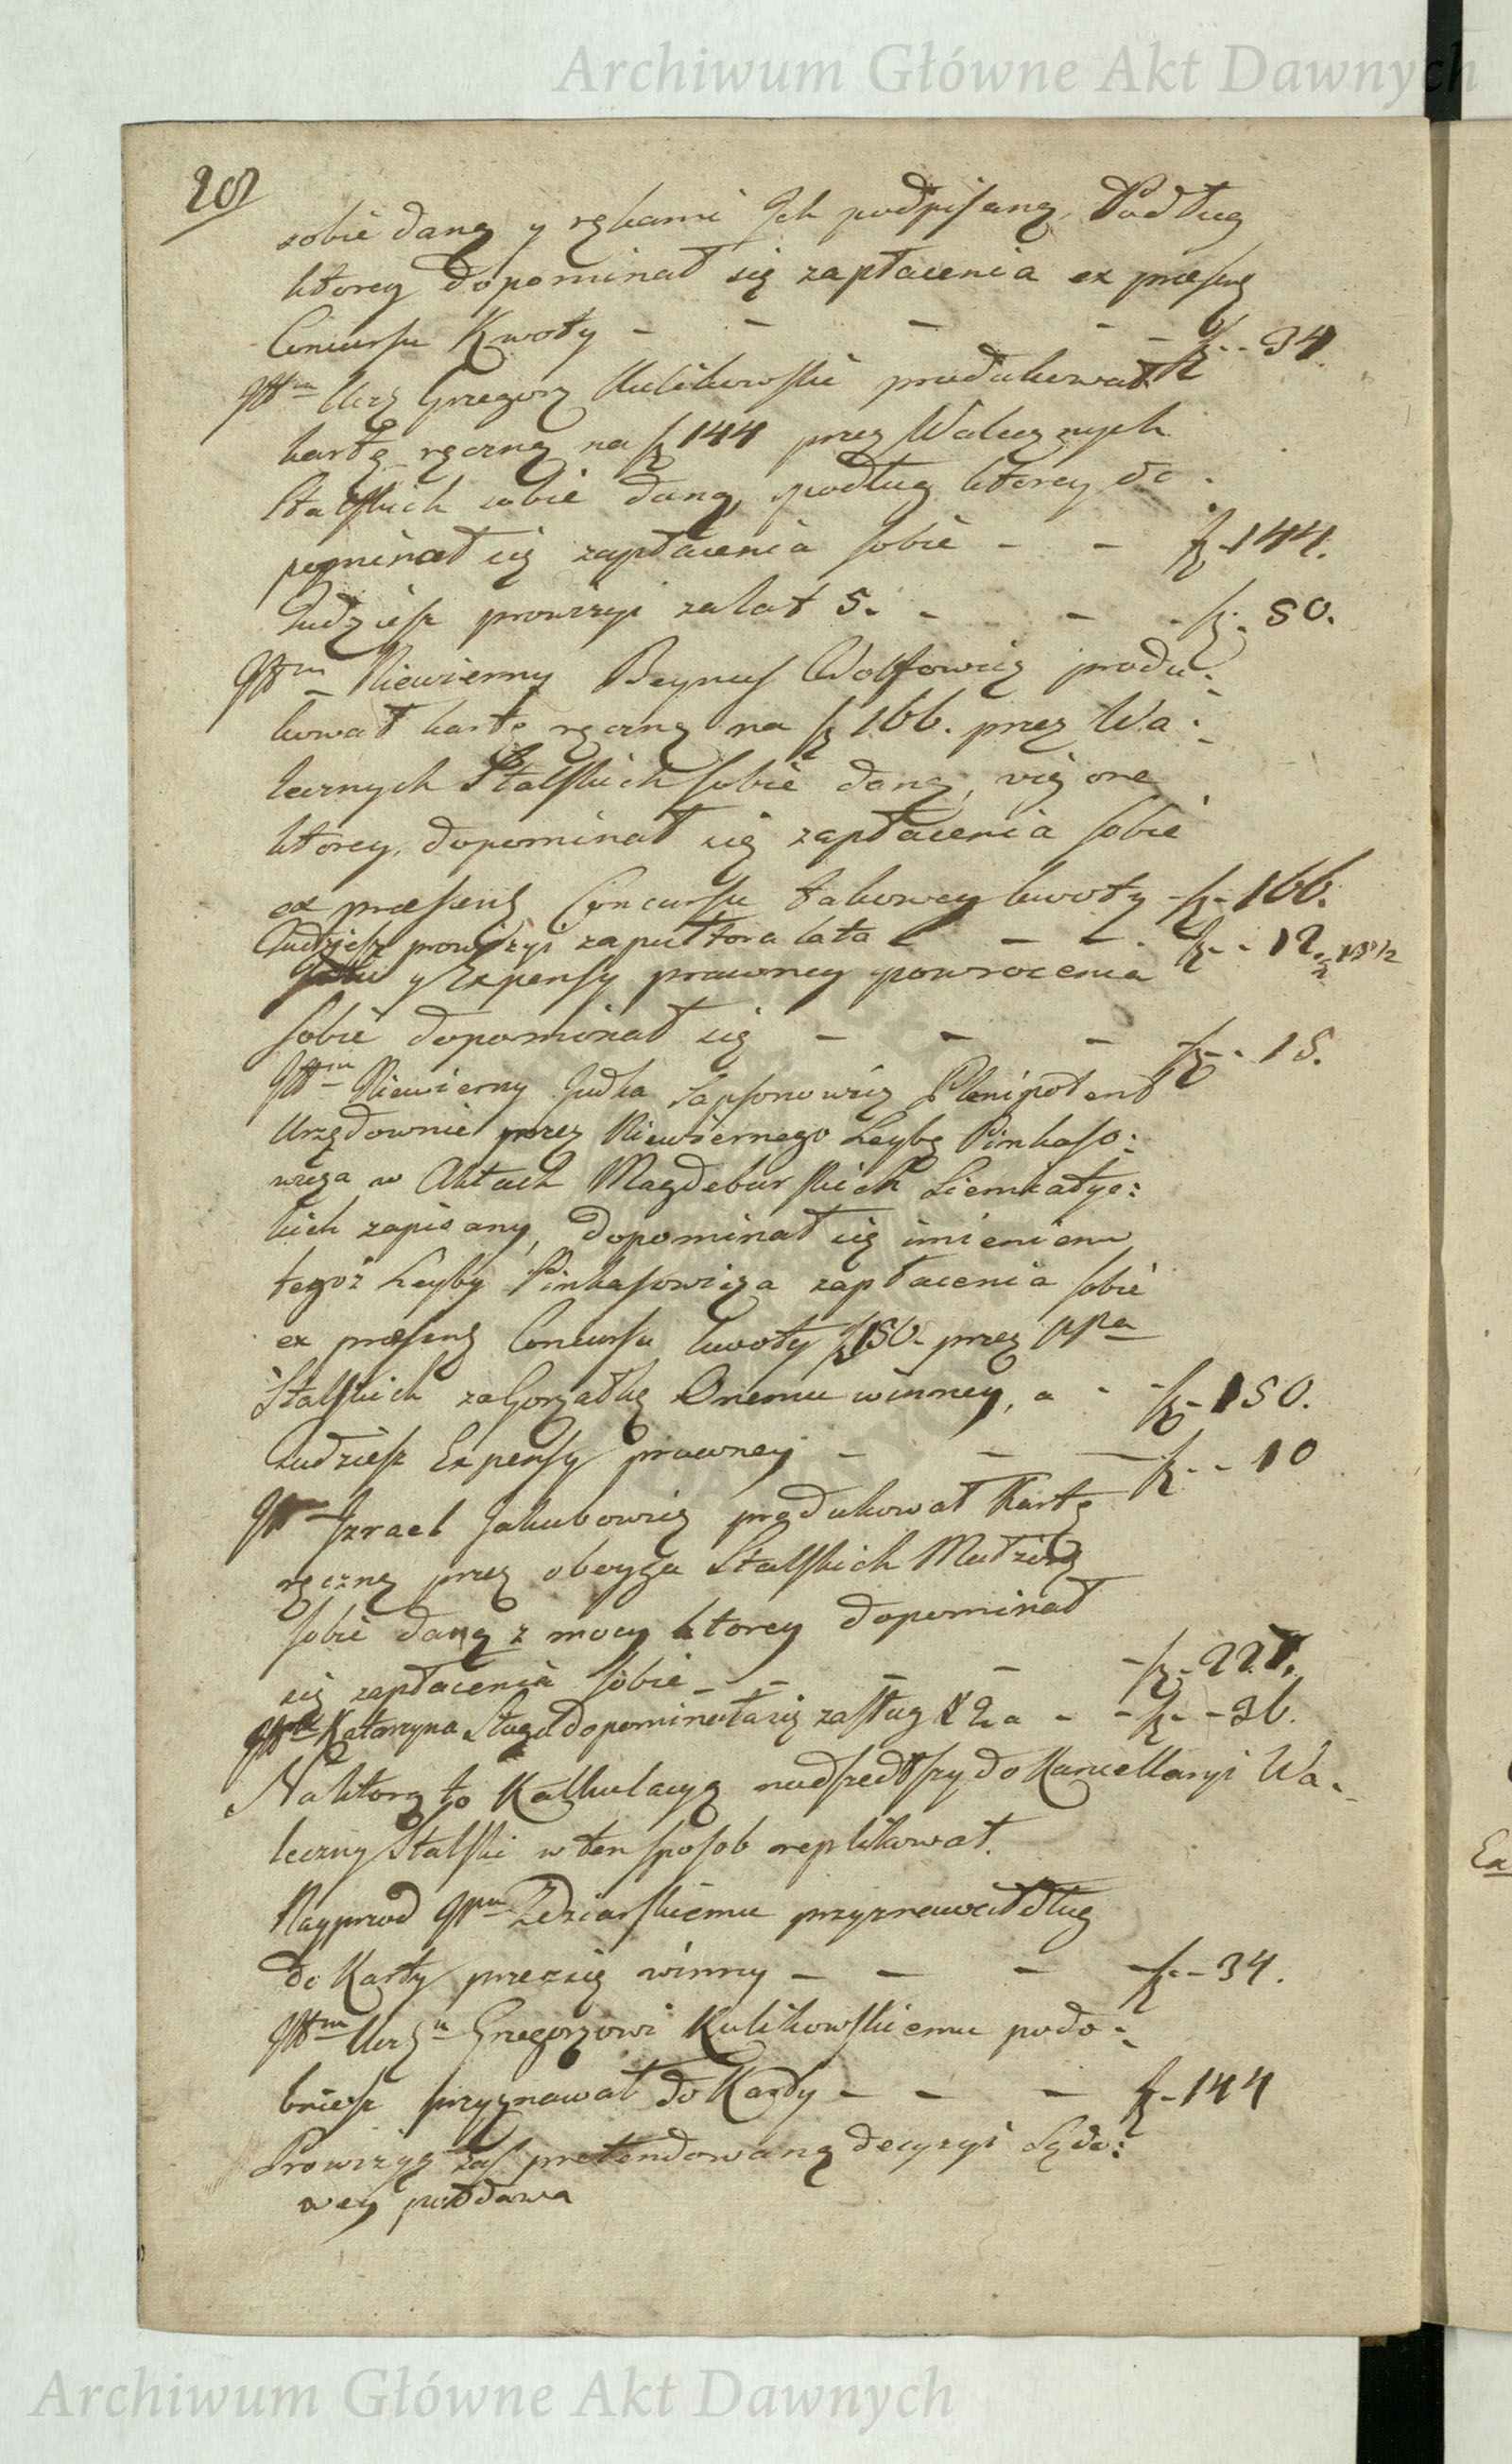 Archiwum Główne Akt Dawnych
202
sobie daną y rękami Ich podpisaną, Podług
ktorey dopominał się zapłacenia ex præsenz
Concursu Kwoty - - - - - f - 34.
Grzegorz Kulikowski produkował
kartę ręczną na f 144 przez Walecznych
Stalskich sobie daną, podług ktorey do:
pominał się zapłacenia sobie - - f 144.
Tudziesz prowizyi za lat 5. - - - f - 50.
Itm Niewierny Beynus Wolfowicz produ:
kował kartę ręczną na f 166. przez Wa:
lecznych Stalskich sobie daną, vigore
ktorey, dopominał się zapłacenia sobie
ex præsenz Concursu takowey kwoty - f - 166.
Tudziesz prowizyi za pułtora lata - - - f - 12
y Expensy prawney powrocenia
sobie dopominał się - - - f - 15.
Itm Niewierny Judka Sapsonowicz Plenipotent
Urzędownie przez Niewiernego Leybę Pinkaso:
wicza w Aktach Magdeburskich Siemiatyc:
kich zapisany, dopominał się imieniem
tegoż Leyby Pinkasowicza zapłacenia sobie
ex præsenz Concursu kwoty f 150. przez
Stalskich za Gorzałkę Onemu winney, a - f - 150.
Tudziesz Expensy prawney - - - f - - 10
Izrael Jakubowicz produkował Kartę
ręczną przez oboyga Stalskich Małżon
sobie daną z mocy ktorey dopominał
się zapłacenia sobie - - - - f - 221.
Katarzyna Sługa dopominała się zasług - - f - - 36.
Na ktorą to Kalkulacyą nadszedłszy do Kancellaryi Wa:
leczny Stalski w ten sposob replikował.
Nayprzod Zdziarskiemu przyznawał dług
do Karty przez się winny - - - f - - 34.
Grzegorzowi Kulikowskiemu podo:
bniesz przyznawał do Karty - - - f - 144
Prowizyą zaś pretendowaną decyzyi Sądo:
wey poddawa
Archiwum Główne Akt Dawnych